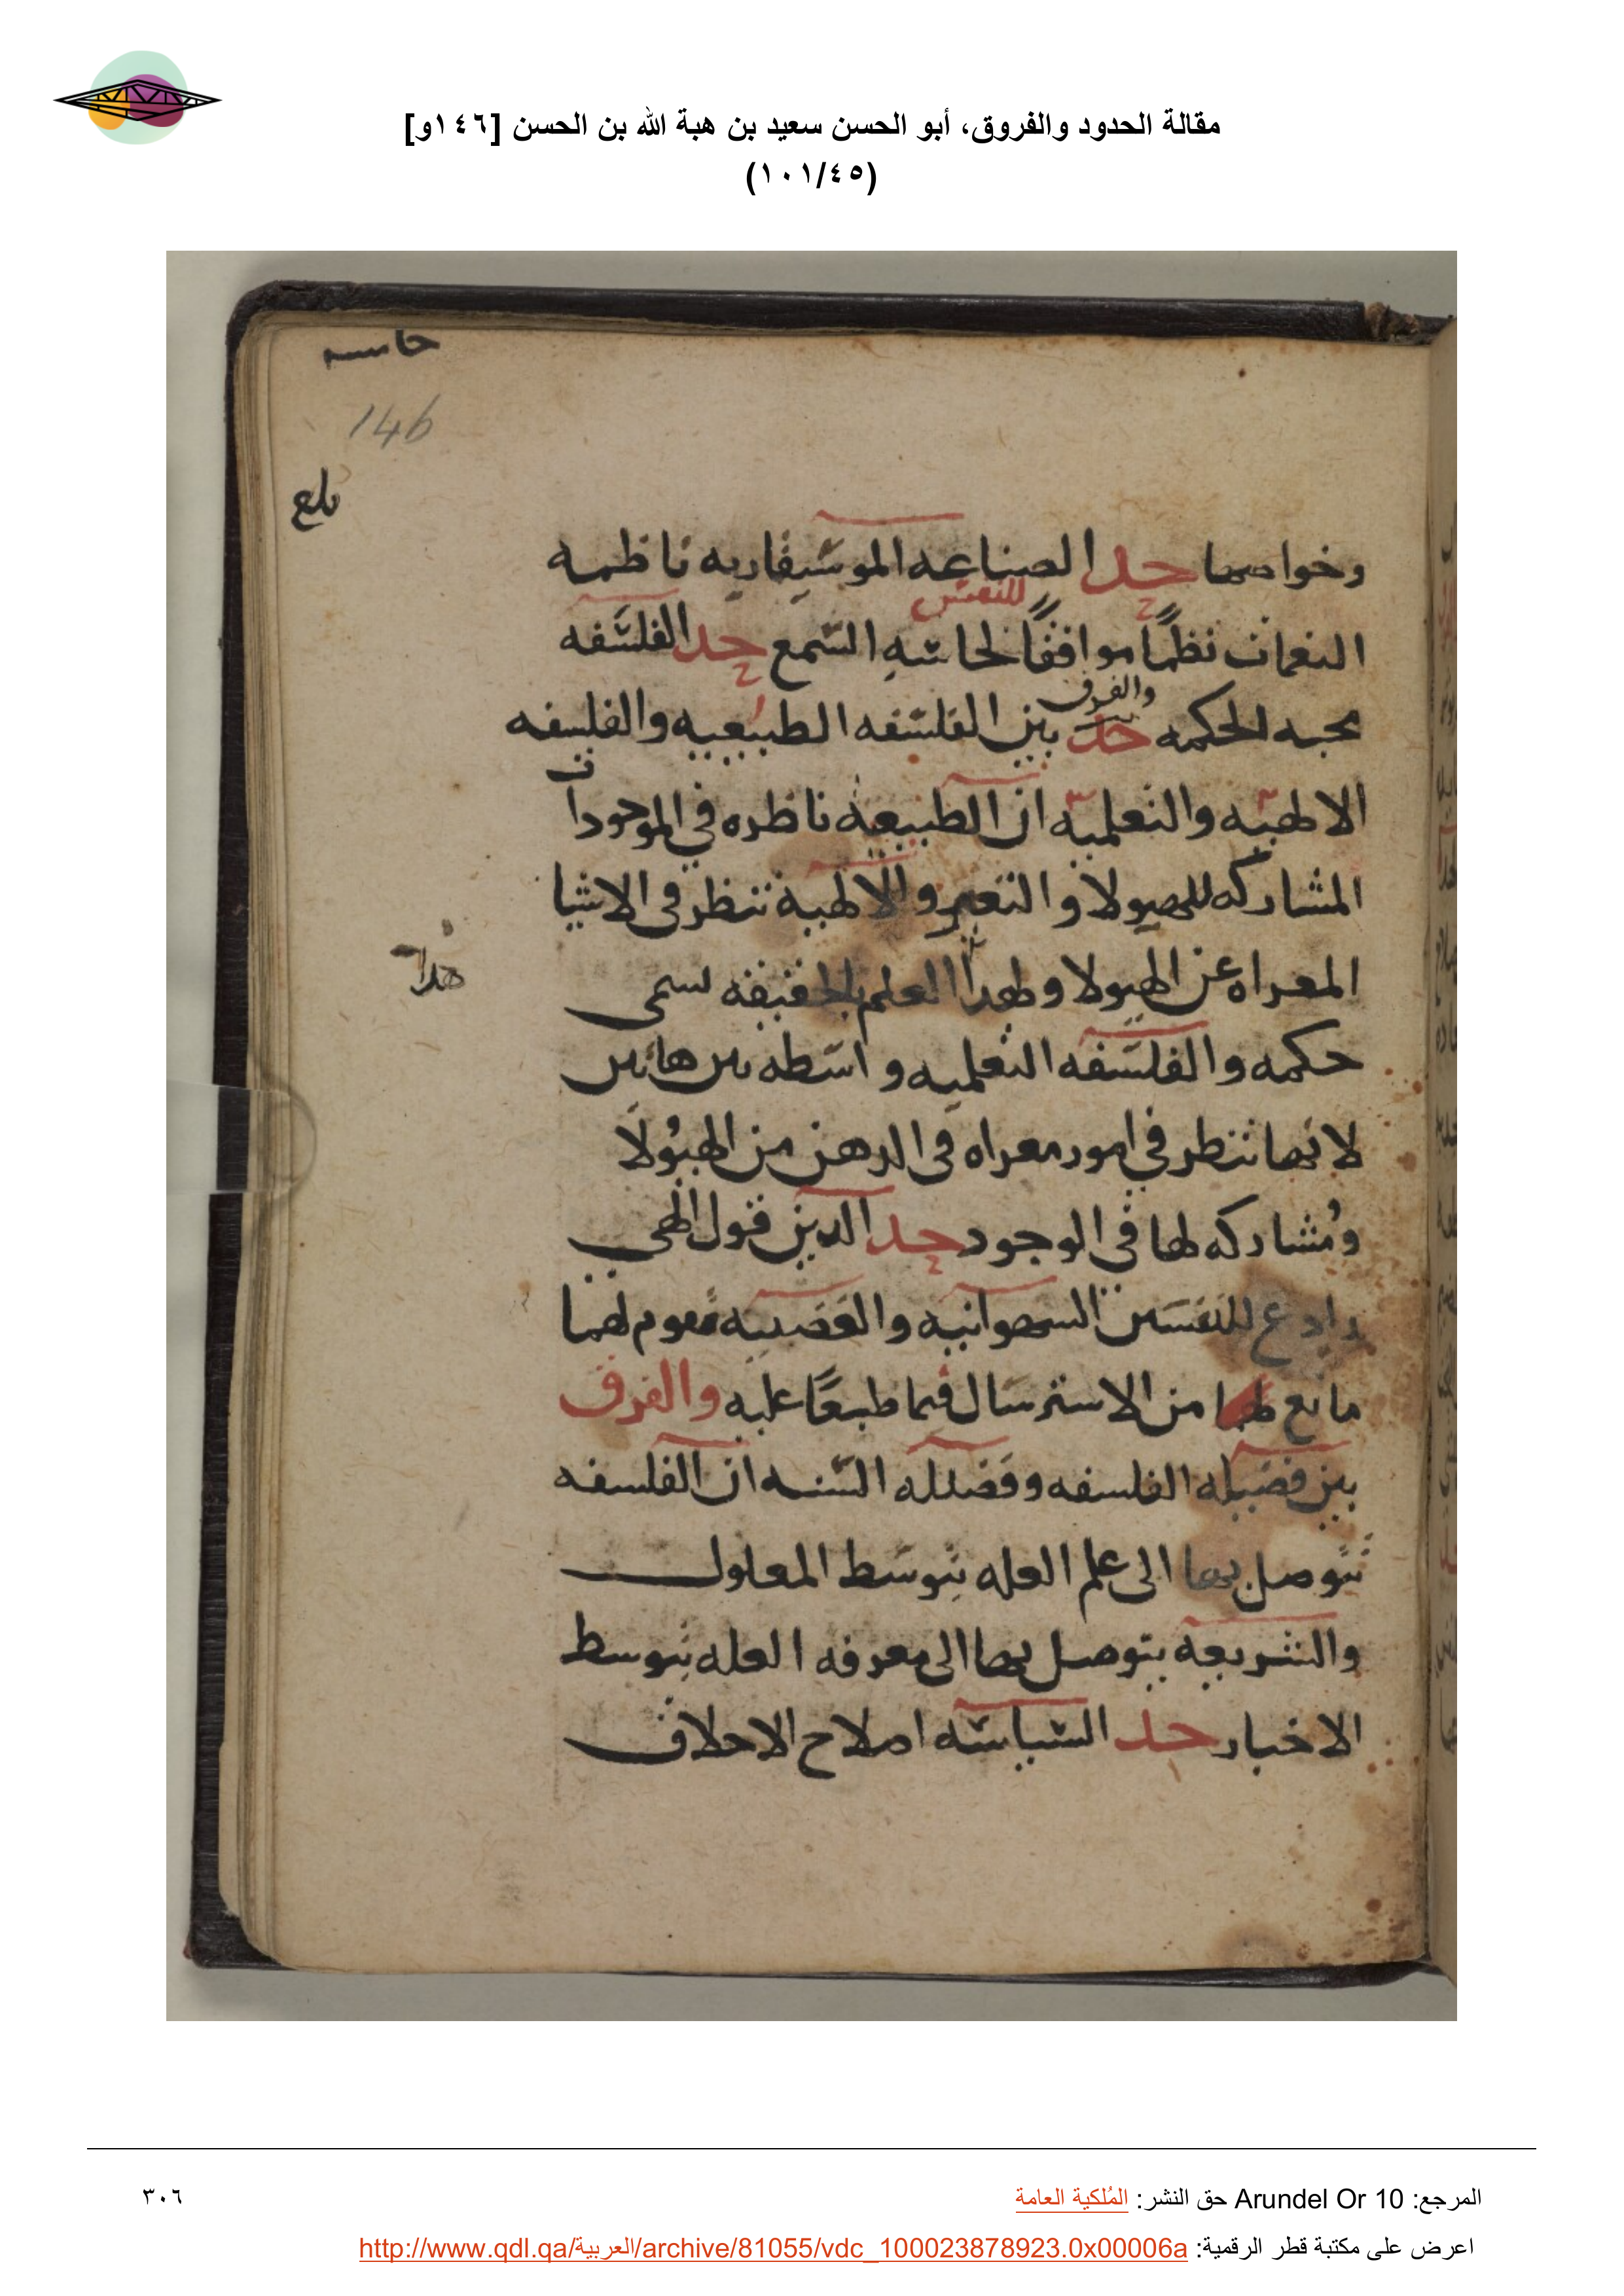 مقالة الحدود والفروق، أبو الحسن سعيد بن هبة الله بن الحسن [١٤٦و]
(١٠١/٤٥)
146
بلغ
وخواصها حد الصناعه الموسيقاريه ناظمه
للنفس
النغمات نظمًا موافقًا لحاسه السمع حد الفلسفه
والفرق
محبه الحكمه حد بين الفلسفه الطبيعيه والفلسفه
الالهيه والتعلميه ان الطبيعة ناظره في الموجودات
المشاركه للهيولا و التغير والالهية تنظر في الاشيا
المعراه عن الهيولا ولهدا العلم بالحقيقه يسمى
هدا
حكمه والفلسفه التعلميه واسطه بين هاتين
لانها تنظر في امور معراه في الدهن من الهيُولَا
ومُشاركه لها في الوجود حد الدين قول الهي
رادع للنفسين الشهوانيه والغضبيه مقوم لهما
مانع لهما من الاسترسال فيما طبعًا عليه والفرق
بين فضيله الفلسفه وفضيله السنه ان الفلسفه
يتوصل بها الى علم العله بتوسط المعلول
والشريعه يتوصل بها الى معرفه العله بتوسط
الاخبار حد السياسه اصلاح الاخلاق
المرجع: Arundel Or 10 حق النشر: المُلكية العامة
٣٠٦
اعرض على مكتبة قطر الرقمية: http://www.qdl.qa/العربية/archive/81055/vdc_100023878923.0x00006a